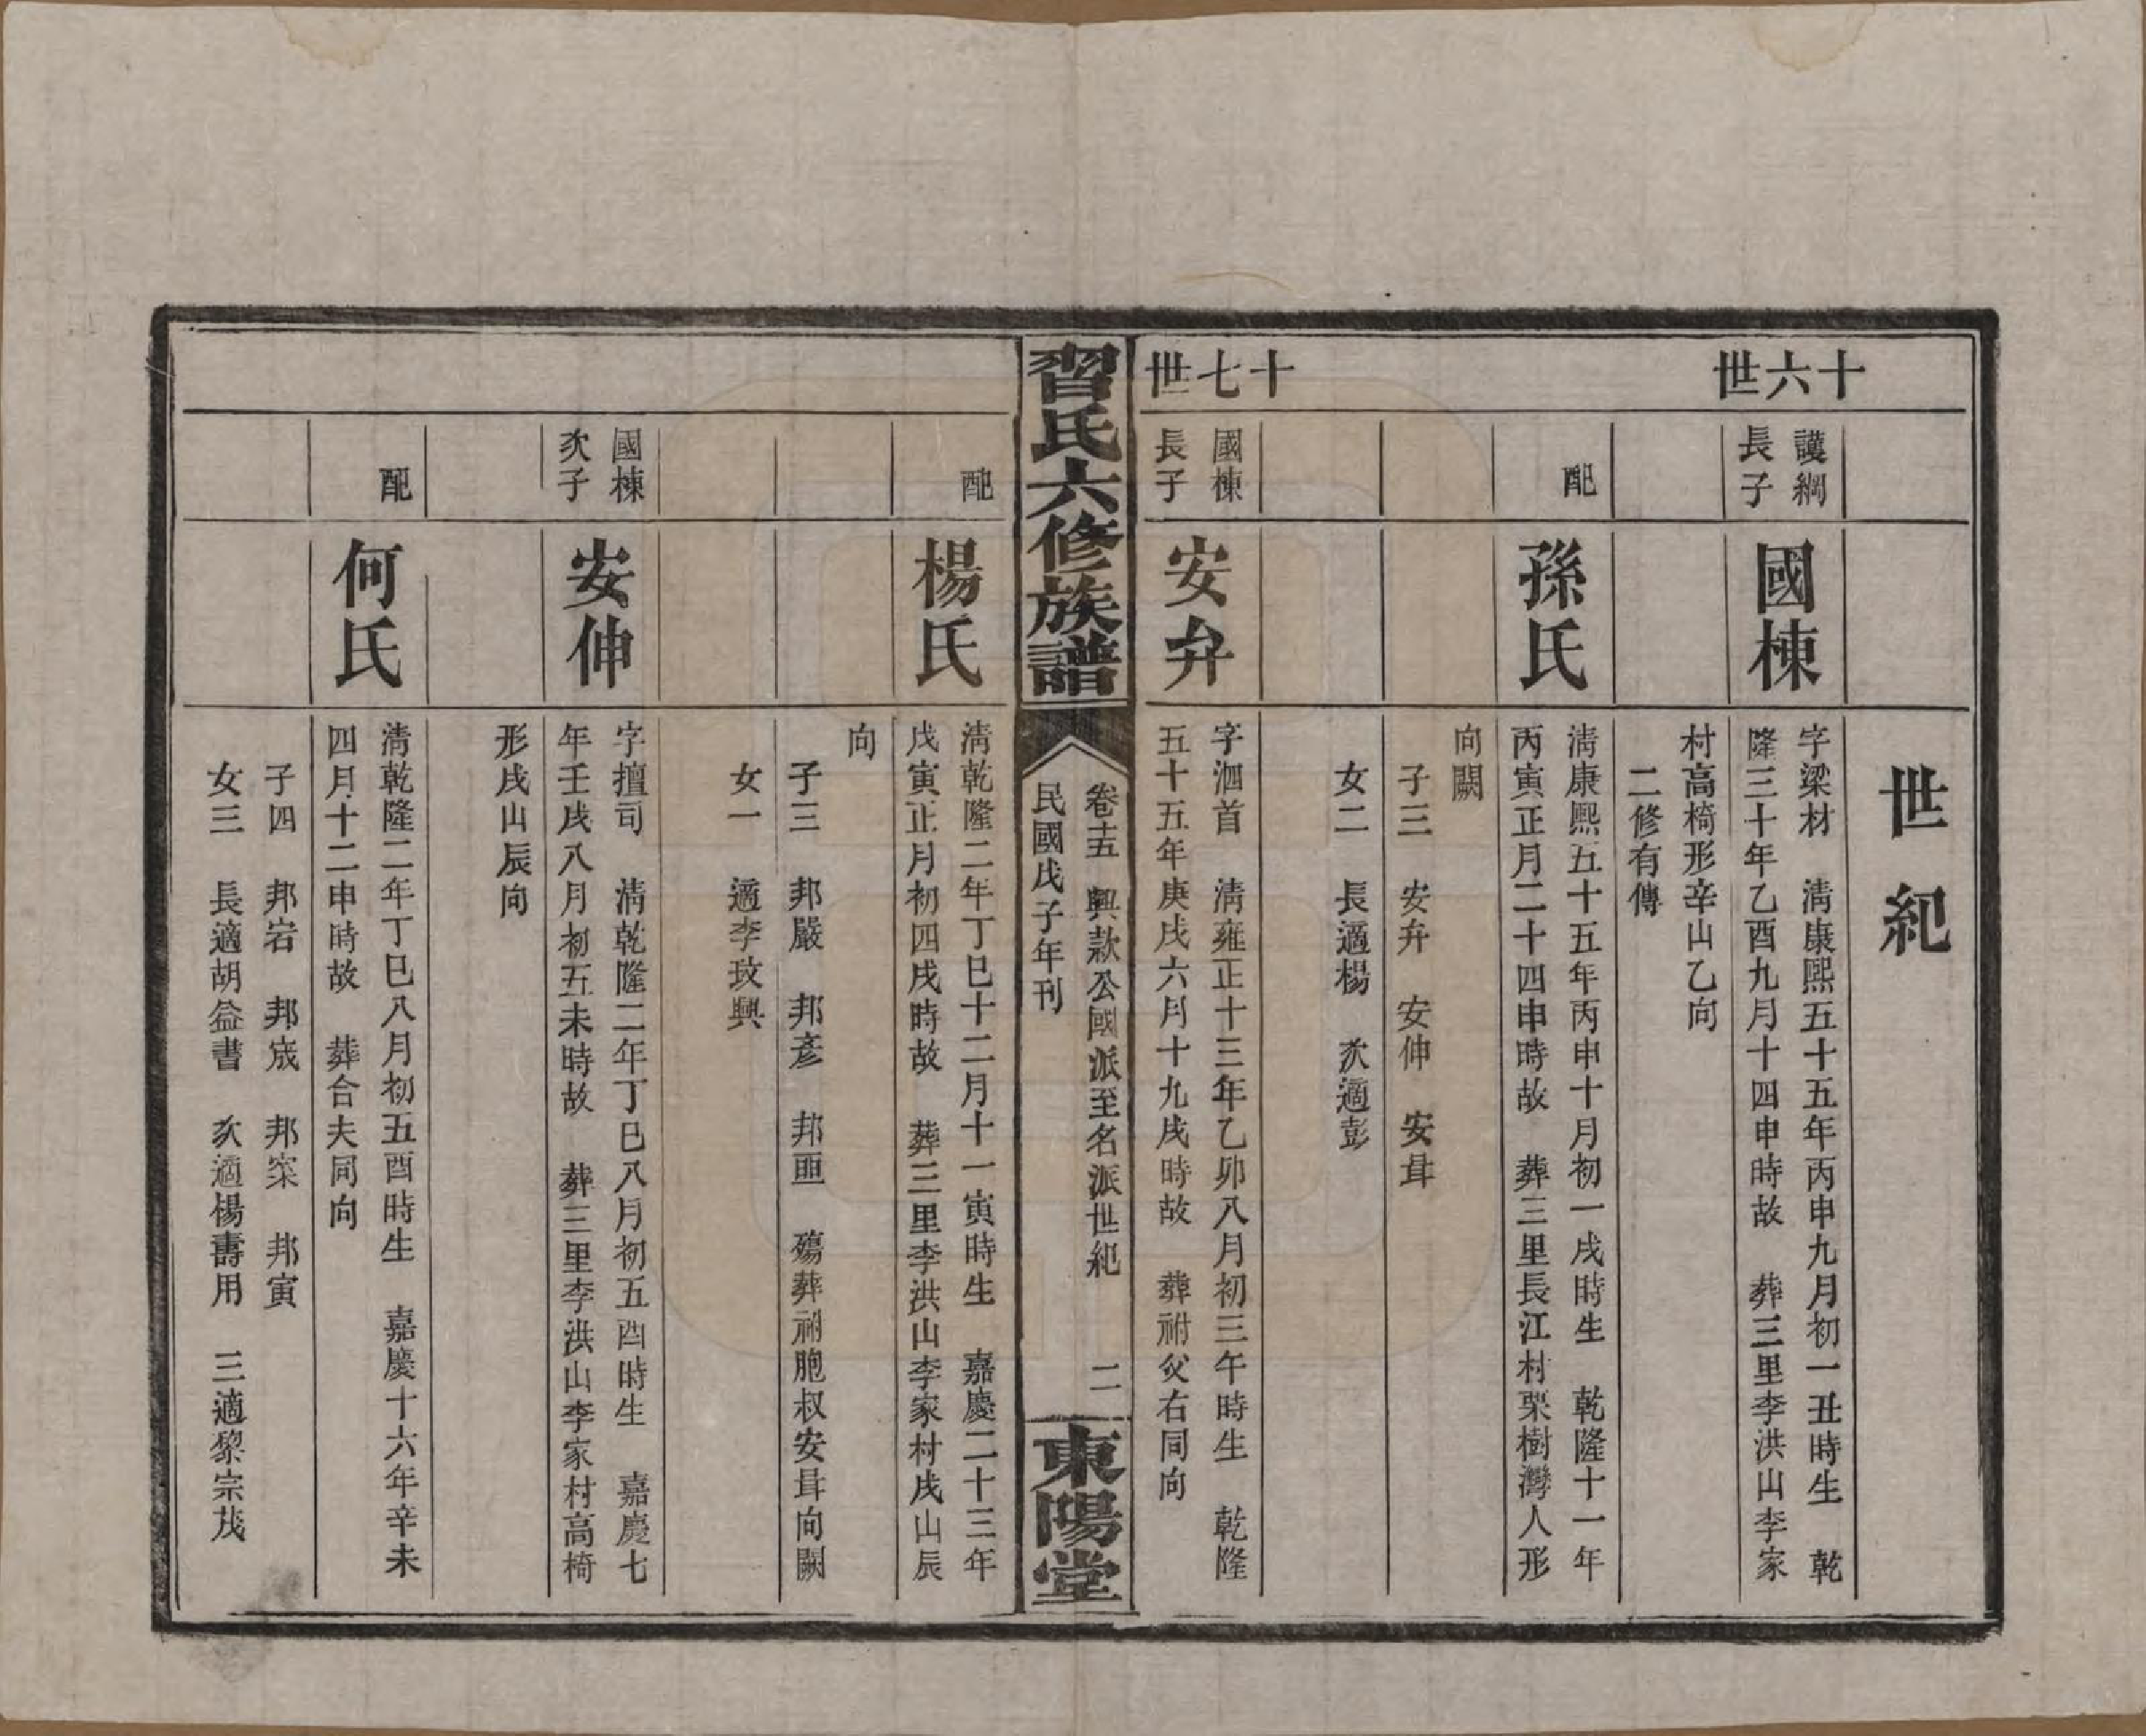 世紀
十六世
護綱
長子
國棟
字梁材　清康熙五十五年丙申九月初一丑時生　乾
隆三十年乙酉九月十四申時故　葬三里李洪山李家
村高椅形辛山乙向
二修有傳
配
孫氏
清康熙五十五年丙申十月初一戌時生　乾隆十一年
丙寅正月二十四申時故　葬三里長江村栗樹灣人形
向闕
子三　安弁　安伸　安咠
女二　長適楊　次適彭
十七世
國棟
長子
安弁
字泗首　清雍正十三年乙卯八月初三午時生　乾隆
五十五年庚戌六月十九戌時故　葬祔父右同向
習氏六修族譜
卷十五　興款公國派至名派世紀　二
民國戊子年刊
東陽堂
配
楊氏
清乾隆二年丁巳十二月十一寅時生　嘉慶二十三年
戊寅正月初四戌時故　葬三里李洪山李家村戌山辰
向
子三　邦嚴　邦彥　邦亜　殤葬祔胞叔安咠向闕
女一　適李玫興
國棟
次子
安伸
字擅司　清乾隆二年丁巳八月初五酉時生　嘉慶七
年壬戌八月初五未時故　葬三里李洪山李家村高椅
形戌山辰向
配
何氏
清乾隆二年丁巳八月初五酉時生　嘉慶十六年辛未
四月十二申時故　葬合夫同向
子四　邦岩　邦宬　邦寀　邦寅
女三　長適胡益書　次適楊壽用　三適黎宗茂